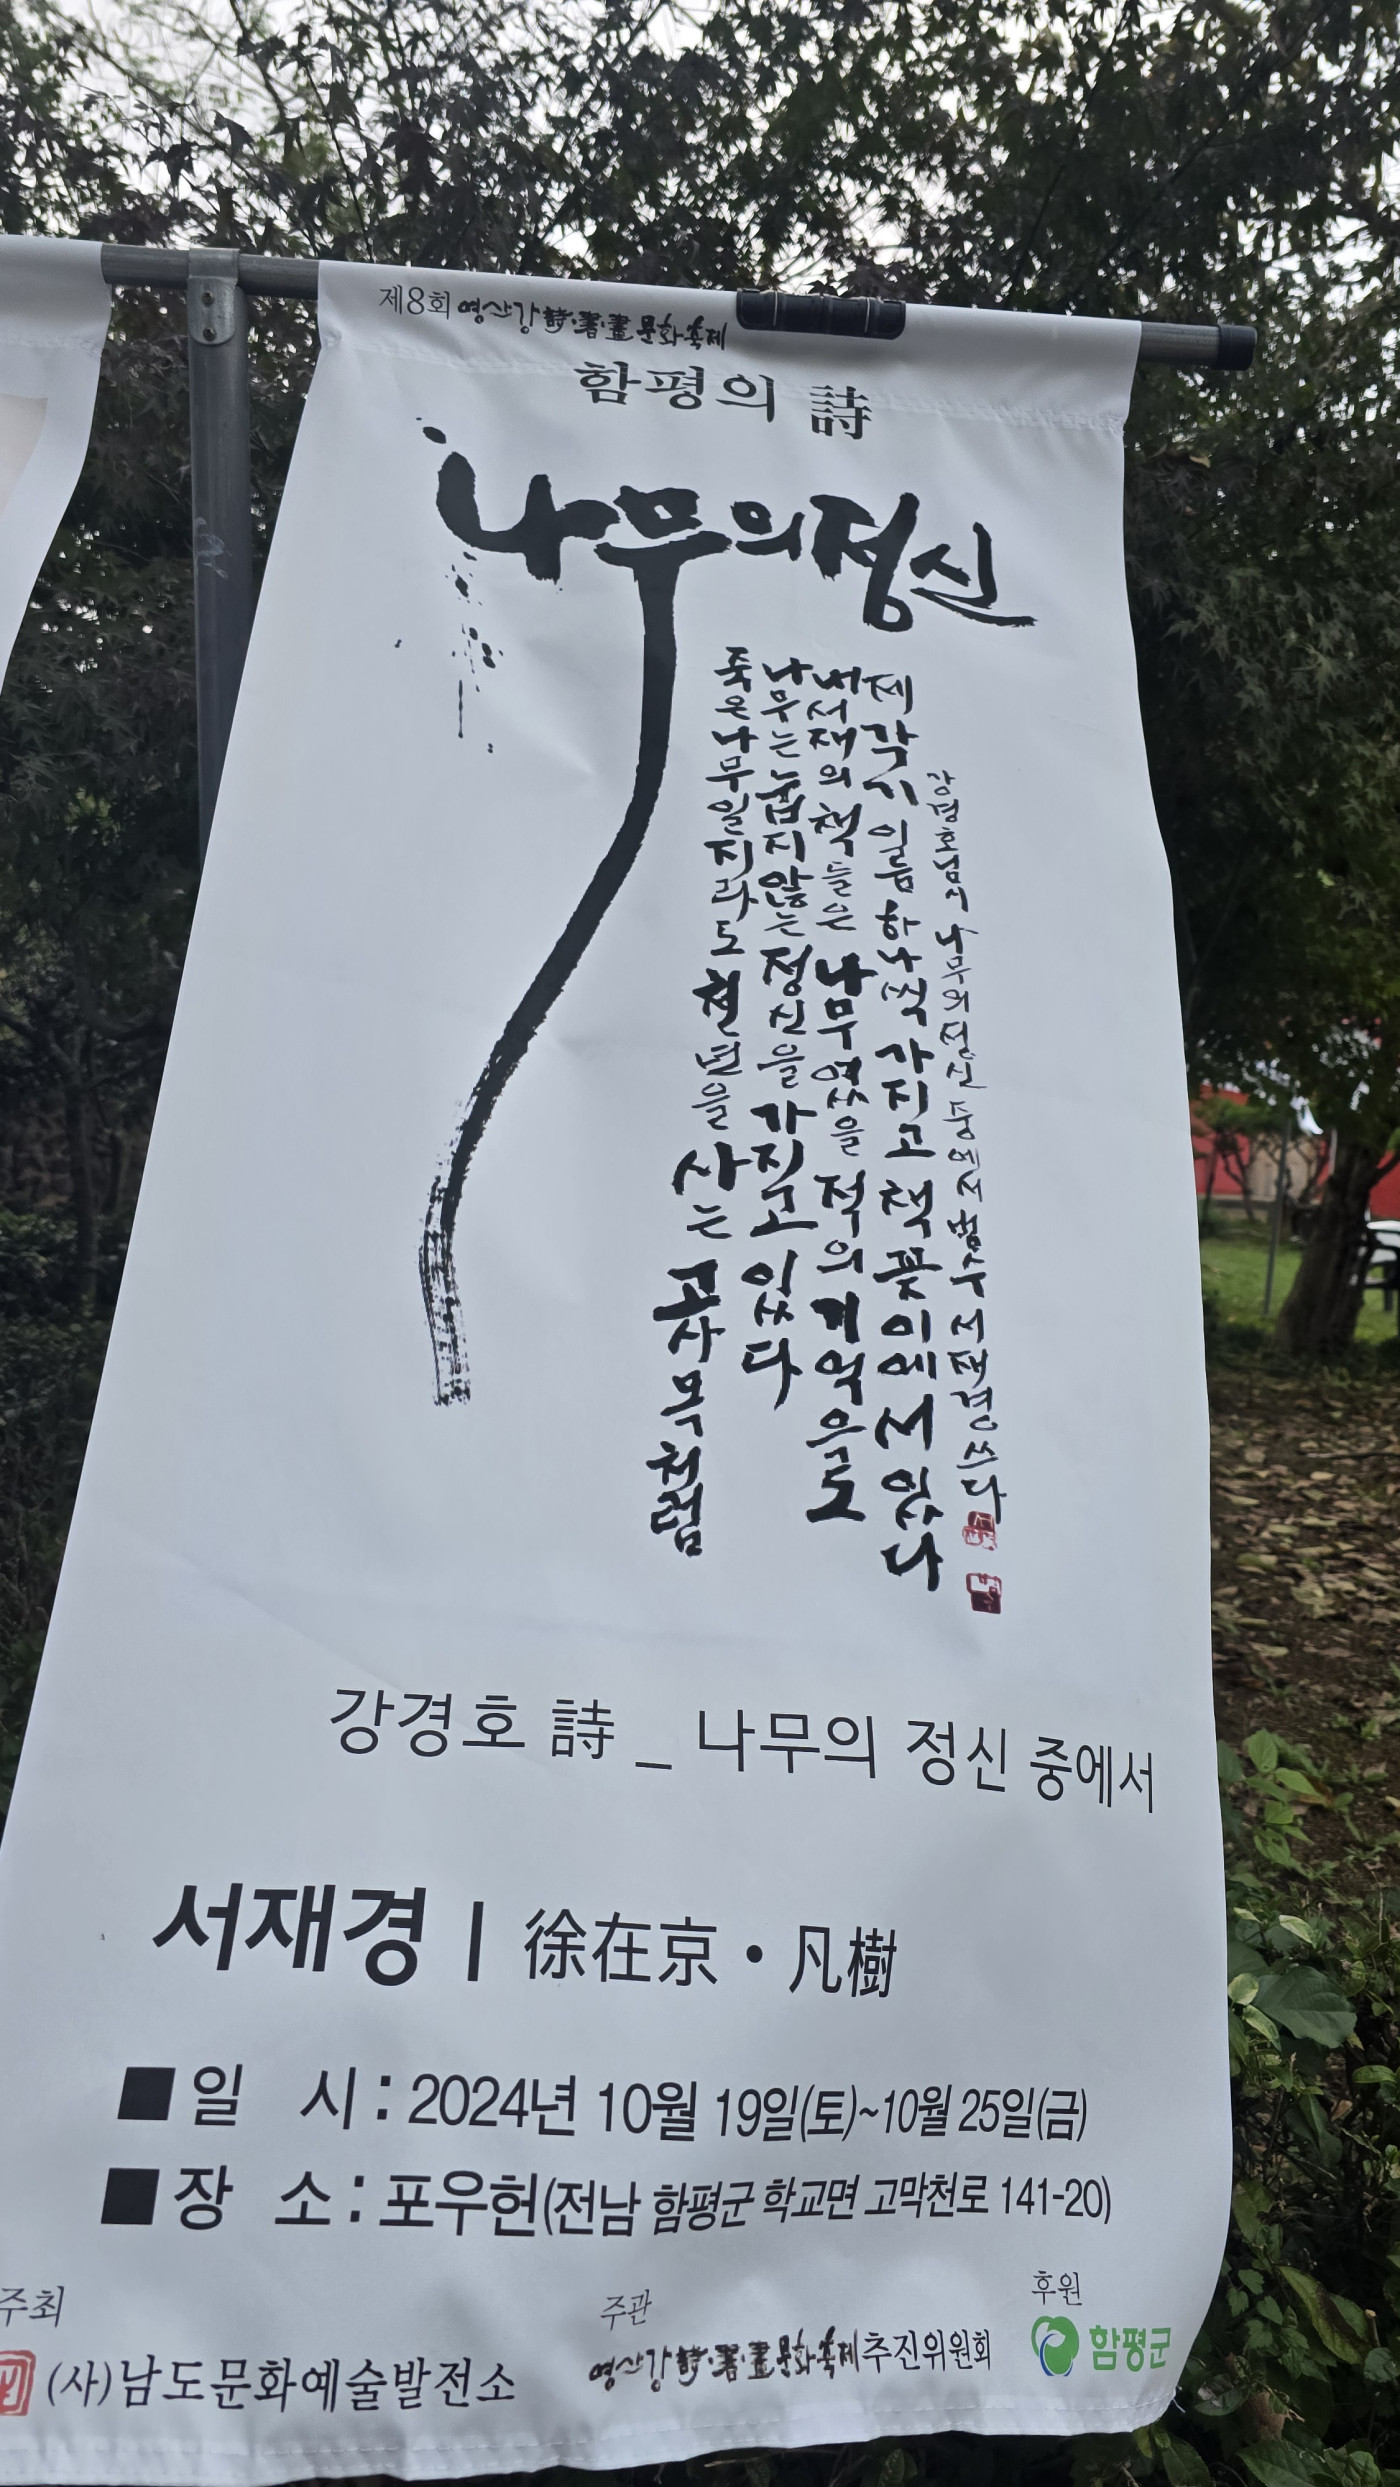 제8회 영산강 詩·書·畫 문화축제
함평의 詩
나무의 정신
죽은 나무일지라도 철편을 사는 고사목처럼
나무는 눕지 않는 정신을 가지고 있다
내 서재의 책들은 나무였을 적의 기억으로
제각기 이름 하나씩 가지고 책꽂이에 서 있다
강경호님 시 나무의 정신 중에서 범수 서재경 쓰다
강경호 詩 _ 나무의 정신 중에서
서재경 | 徐在京 · 凡樹
■ 일 시 : 2024년 10월 19일(토)~10월 25일(금)
■ 장 소 : 포우헌(전남 함평군 학교면 고막천로 141-20)
주최
(사)남도문화예술발전소
주관
영산강 詩·書·畫 문화축제추진위원회
후원
함평군